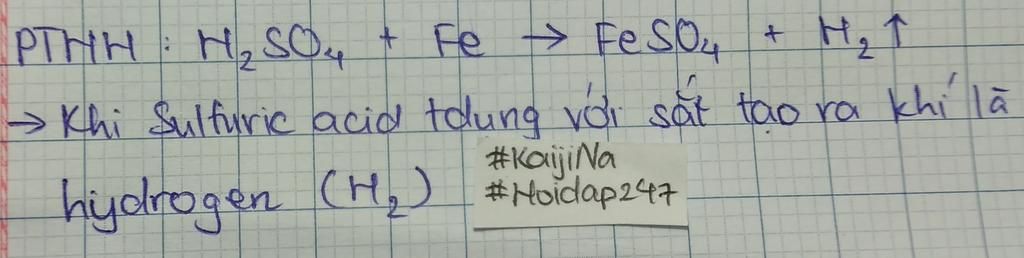 PTHH : H₂SO₄ + Fe → FeSO₄ + H₂↑
→ Khi Sulfuric acid tdung với sắt tạo ra khí là
hydrogen (H₂)
#KaijiNa
#Hoidap247